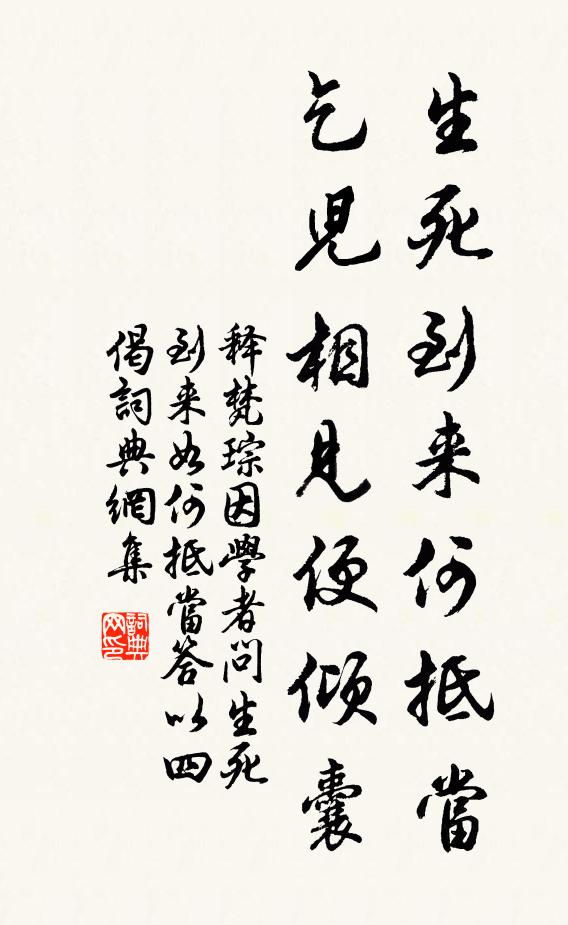 生死到来何抵當
乞児相見便傾囊
释梵琮因學者問生死
到来如何抵當答以四
偈詞典網集
詞典网印